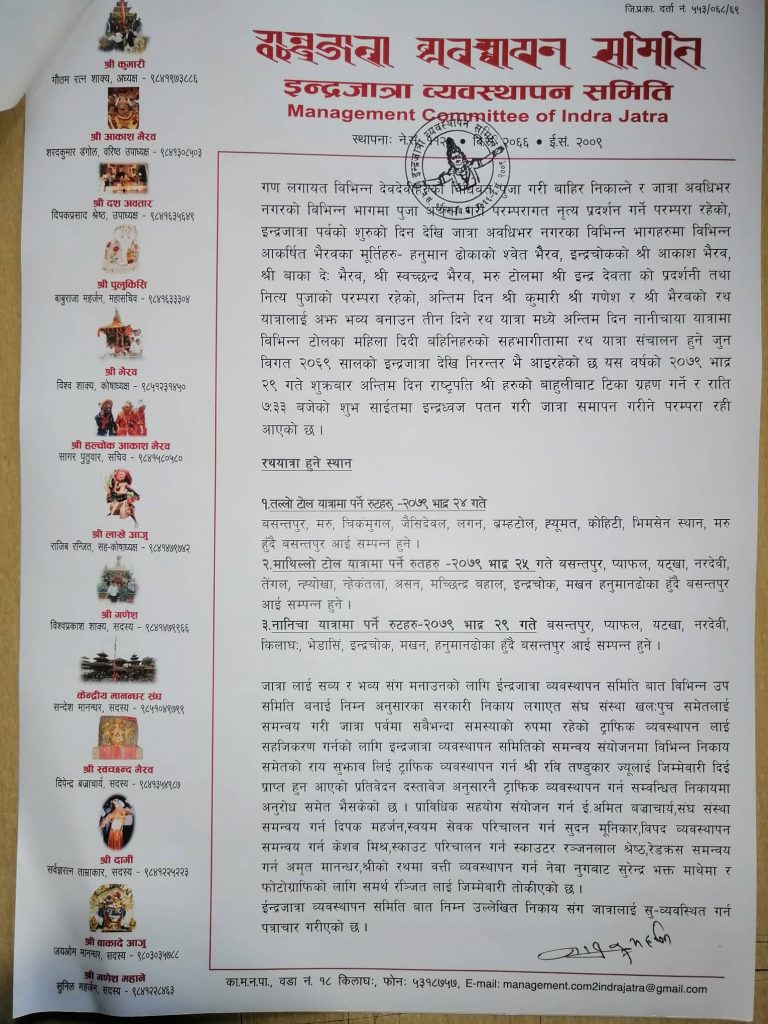 जि.प्र.का. दर्ता नं. ५५३/०६८/६९
इन्द्रजात्रा व्यवस्थापन समिति
Management Committee of Indra Jatra
स्थापनाः ने.सं. • वि.सं. २०६६ • ई.सं. २००९
श्री कुमारी
गौतम रत्न शाक्य, अध्यक्ष - ९८४१९७३८८६
श्री आकाश भैरव
शरदकुमार डंगोल, वरिष्ठ उपाध्यक्ष - ९८४१३०८५०३
श्री दश अवतार
दिपकप्रसाद श्रेष्ठ, उपाध्यक्ष - ९८४१६३५६४९
श्री पुलुकिसि
बाबुराजा महर्जन, महासचिव - ९८४१६३३३०४
श्री भैरव
विश्व शाक्य, कोषाध्यक्ष - ९८५१२३१४५०
श्री हल्चोक आकाश भैरव
सागर पुतुवार, सचिव - ९८४१५८०५८०
श्री लाखे आजु
राजिब रन्जित, सह-कोषाध्यक्ष - ९८४१४७९७४२
श्री गणेश
विश्वप्रकाश शाक्य, सदस्य - ९८४१४७९९६६
केन्द्रीय मानन्धर संघ
सन्देश मानन्धर, सदस्य - ९८५१०४९७९९
श्री स्वच्छन्द भैरव
दिपेन्द्र बज्राचार्य, सदस्य - ९८४१३५४९८७
श्री दागी
सर्वज्ञरत्न ताम्राकार, सदस्य - ९८४१२२५२२३
श्री वाकादे आजु
जयओम मानन्धर, सदस्य - ९८०३०३५७८८
श्री गणेश महाने
सुनिल महर्जन, सदस्य - ९८४१२२८४६३
गण लगायत विभिन्न पुजा गरी बाहिर निकाल्ने र जात्रा अवधिभर
नगरको विभिन्न भागमा पुजा परम्परागत नृत्य प्रदर्शन गर्ने परम्परा रहेको,
इन्द्रजात्रा पर्वको शुरुको दिन देखि जात्रा अवधिभर नगरका विभिन्न भागहरुमा विभिन्न
आकर्षित भैरवका मूर्तिहरु- हनुमान ढोकाको श्वेत भैरव, इन्द्रचोकको श्री आकाश भैरव,
श्री बाका देः भैरव, श्री स्वच्छन्द भैरव, मरु टोलमा श्री इन्द्र देवता को प्रदर्शनी तथा
नित्य पुजाको परम्परा रहेको, अन्तिम दिन श्री कुमारी श्री गणेश र श्री भैरबको रथ
यात्रालाई अझ भव्य बनाउन तीन दिने रथ यात्रा मध्ये अन्तिम दिन नानीचाया यात्रामा
विभिन्न टोलका महिला दिदी बहिनिहरुको सहभागीतामा रथ यात्रा संचालन हुने जुन
विगत २०६९ सालको इन्द्रजात्रा देखि निरन्तर भै आइरहेको छ यस वर्षको २०७९ भाद्र
२९ गते शुक्रबार अन्तिम दिन राष्ट्रपति श्री हरुको बाहुलीबाट टिका ग्रहण गर्ने र राति
७:३३ बजेको शुभ साईतमा इन्द्रध्वज पतन गरी जात्रा समापन गरीने परम्परा रही
आएको छ ।
रथयात्रा हुने स्थान
१.तल्लो टोल यात्रामा पर्ने रुटहरु, -२०७९ भाद्र २४ गते
बसन्तपुर, मरु, चिकंमुगल, जैसिदेवल, लगन, ब्रम्हटोल, ह्यूमत, कोहिटी, भिमसेन स्थान, मरु
हुँदै बसन्तपुर आई सम्पन्न हुने ।
२.माथिल्लो टोल यात्रामा पर्ने रुतहरु -२०७९ भाद्र २५ गते बसन्तपुर, प्याफल, यट्खा, नरदेवी,
तेंगल, न्ह्योखा, न्हेकंतला, असन, मच्छिन्द्र बहाल, इन्द्रचोक, मखन हनुमानढोका हुँदै बसन्तपुर
आई सम्पन्न हुने ।
३.नानिचा यात्रामा पर्ने रुटहरु-२०७९ भाद्र २९ गते बसन्तपुर, प्याफल, यटखा, नरदेवी,
किलाघः, भेडासिं, इन्द्रचोक, मखन, हनुमानढोका हुँदै बसन्तपुर आई सम्पन्न हुने ।
जात्रा लाई सव्य र भव्य संग मनाउनको लागि ईन्द्रजात्रा व्यवस्थापन समिति बात विभिन्न उप
समिति बनाई निम्न अनुसारका सरकारी निकाय लगाएत संघ संस्था खलःपुच समेतलाई
समन्वय गरी जात्रा पर्वमा सवैभन्दा समस्याको रुपमा रहेको ट्राफिक व्यवस्थापन लाई
सहजिकरण गर्नको लागि इन्द्रजात्रा व्यवस्थापन समितिको समन्वय संयोजनमा विभिन्न निकाय
समेतको राय सुझाव लिई ट्राफिक व्यवस्थापन गर्न श्री रवि तण्डुकार ज्यूलाई जिम्मेवारी दिई
प्राप्त हुन आएको प्रतिवेदन दस्तावेज अनुसारनै ट्राफिक व्यवस्थापन गर्न सम्वन्धित निकायमा
अनुरोध समेत भैसकेको छ । प्राविधिक सहयोग संयोजन गर्न ई.अमित बज्राचार्य,संघ संस्था
समन्वय गर्न दिपक महर्जन,स्वयम सेवक परिचालन गर्न सुदन मूनिकार,विपद व्यवस्थापन
समन्वय गर्न केशव मिश्र,स्काउट परिचालन गर्न स्काउटर रञ्जनलाल श्रेष्ठ,रेडक्रस समन्वय
गर्न अमृत मानन्धर,श्रीको रथमा वत्ती व्यवस्थापन गर्न नेवा नुगबाट सुरेन्द्र भक्त माथेमा र
फोटोग्राफिको लागि समर्थ रञ्जित लाई जिम्मेवारी तोकीएको छ ।
ईन्द्रजात्रा व्यवस्थापन समिति बात निम्न उल्लेखित निकाय संग जात्रालाई सु-व्यवस्थित गर्न
पत्राचार गरीएको छ ।
का.म.न.पा., वडा नं. १८ किलाघः, फोनः ५३१८७५७, E-mail: management.com2indrajatra@gmail.com